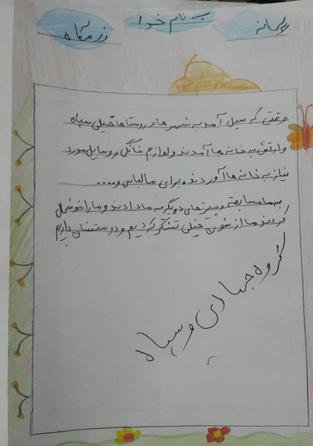 ریحانه به نام خدا رزمگاه
وقتی که سیل آمد به شهر ها و روستاها خیلی سپاه
و ارتش به خانه ها آمدند و لوازم خانگی و وسایل مورد
نیاز به خانه ها آوردند و برای ما لباس و....
به ما مسابقه و چیزهای دیگر به ما دادند و ما را خوشحال
کردند ما از شون خیلی تشکر کردیم و دوستشان داریم
گروه جهادی و سپاه